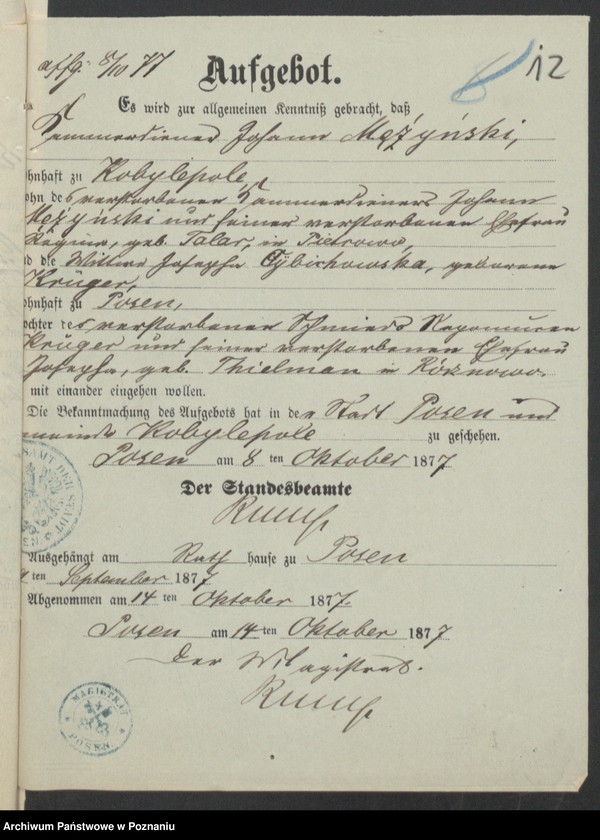 affg: 8/10 77
12
Aufgebot.
Es wird zur allgemeinen Kenntniß gebracht, daß
Kammerdiener Johann Mężyński,
ohnhaft zu Kobylepole,
ohn des verstorbenen Kammerdieners Johann
Mężyński und seiner verstorbenen Ehefrau
Regina, geb. Talar, in Pietrowo,
d die Wittwe Josepha Cybichowska, geborene
Krüger,
ohnhaft zu Posen,
ochter des verstorbenen Schmieds Nepomucen
Krüger und seiner verstorbenen Ehefrau
Josepha, geb. Thielman in Róznowo.
mit einander eingehen wollen.
Die Bekanntmachung des Aufgebots hat in der Stadt Posen und
emeinde Kobylepole zu geschehen.
Posen am 8 ten Oktober 1877
Der Standesbeamte
Ausgehängt am Rath hause zu Posen
ten September 1877
Abgenommen am 14 ten Oktober 1877.
Posen am 14 ten Oktober 1877
Der Magistrat.
MAGISTRAT
POSEN
Archiwum Państwowe w Poznaniu